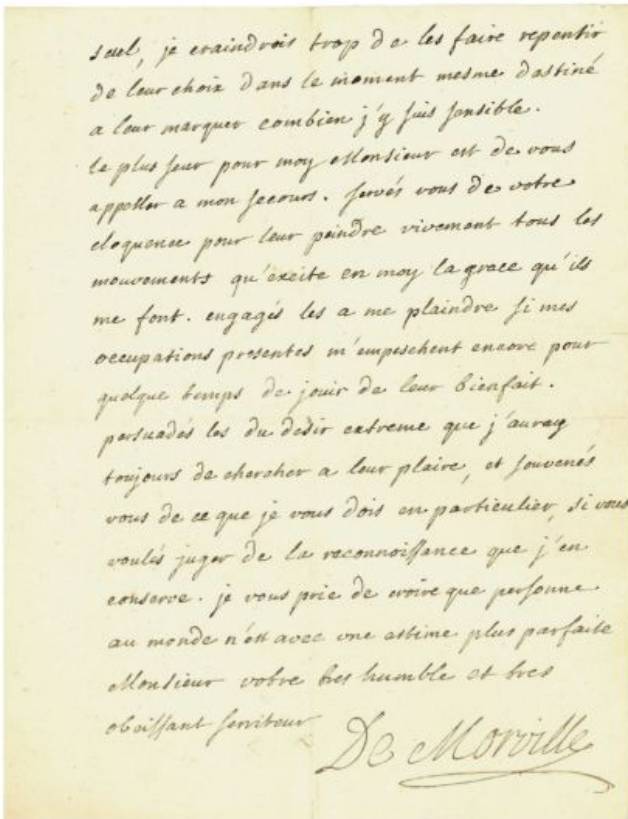 seul, je craindrois trop de les faire repentir
de leur choix dans le moment mesme dastiné
a leur marquer combien j'y suis sensible.
le plus seur pour moy Monsieur est de vous
appeller a mon secours. servés vous de votre
eloquence pour leur peindre vivement tous les
mouvements qu'excite en moy la grace qu'ils
me font. engagés les a me plaindre si mes
occupations presentes m'empeschent encore pour
quelque temps de jouir de leur bienfait.
persuadés les du desir extreme que j'auray
toujours de chercher a leur plaire, et souvenés
vous de ce que je vous dois en particulier, si vous
voulés juger de la reconnoissance que j'en
conserve. je vous prie de croire que personne
au monde n'est avec une estime plus parfaite
Monsieur votre tres humble et tres
obeissant serviteur
De Morville